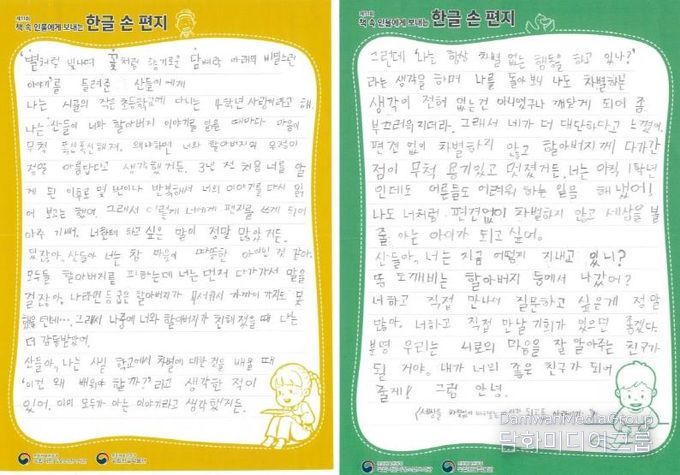 제11회
책 속 인물에게 보내는 한글 손 편지
'별처럼 빛나며 꽃처럼 향기로운 담벼락 아래의 비밀스런
이야기'를 들려준 산들이에게
나는 시골의 작은 초등학교에 다니는 4학년 사랑이라고 해.
나는 산들이 너와 할아버지 이야기를 읽을 때마다 마음이
무척 푹신푹신해져. 왜냐하면 너와 할아버지의 우정이
정말 아름답다고 생각했거든. 3년 전 처음 너를 알
게 된 이후로 몇 번이나 반복해서 너의 이야기를 다시 읽
어 보고는 했어. 그래서 이렇게 너에게 편지를 쓰게 되어
아주 기뻐. 너한테 하고 싶은 말이 정말 많았거든.
있잖아, 산들아 너는 참 마음이 따뜻한 아이인 것 같아.
모두들 할아버지를 피하는데 너는 먼저 다가가서 말을
걸잖아. 나라면 등 굽은 할아버지가 무서워서 가까이 가지도 못
했을텐데… 그래서 나중에 너와 할아버지가 친해졌을 때 나는
더 감동받았어.
산들아, 나는 사실 학교에서 차별에 대한 것을 배울 때
'이건 왜 배워야 할까?'라고 생각한 적이
있어. 이미 모두가 아는 이야기라고 생각했거든.
제11회
책 속 인물에게 보내는 한글 손 편지
그런데 '나는 항상 차별 없는 행동을 하고 있나?'
라는 생각을 하며 나를 돌아보니 나도 차별하는
생각이 전혀 없는건 아니었구나 깨닫게 되어 좀
부끄러워지더라. 그래서 네가 더 대단하다고 느꼈어.
편견 없이 차별하지 않고 할아버지께 다가간
점이 무척 용기있고 멋졌거든. 너는 아직 1학년
인데도 어른들도 어려워 하는 일을 해냈어!
나도 너처럼 편견없이 차별하지 않고 세상을 볼
줄 아는 아이가 되고 싶어.
산들아, 너는 지금 어떻게 지내고 있니?
또 도깨비는 할아버지 등에서 나갔어?
너하고 직접 만나서 질문하고 싶은게 정말
많아. 너하고 직접 만날 기회가 있으면 좋겠다.
분명 우리는 서로의 마음을 잘 알아주는 친구가
될 거야. 내가 너의 좋은 친구가 되어
줄게! 그럼 안녕.
DamwhaMediaGroup
담화미디어그룹